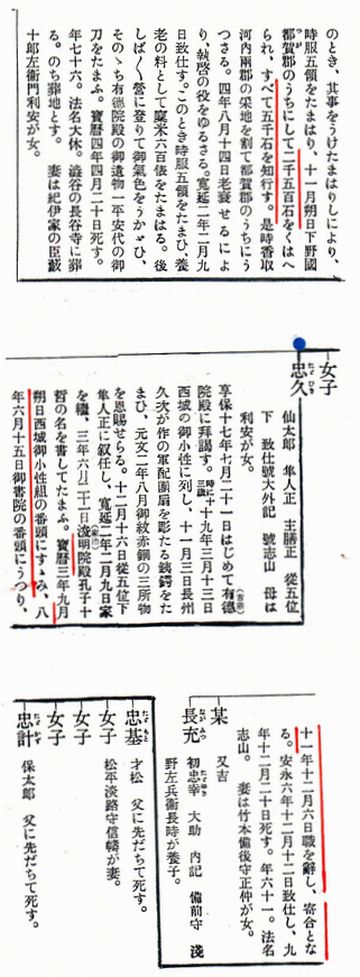 のとき、其事をうけたまはりしにより、
時服五領をたまはり、十一月朔日下野國
都賀郡のうちにして二千五百石をくはへ
られ、すべて五千石を知行す。是時香取
河内兩郡の采地を割て都賀郡のうちにう
つさる。四年八月十四日老衰せるによ
り、執啓の役をゆるさる。寛延二年二月九
日致仕す。このとき時服五領をたまひ、養
老の料として廩米六百俵をたまはる。後
しば〱營に登りて御氣色をうかゞひ、
そのゝち有德院殿の御遺物一平安代の御
刀をたまふ。寶暦四年四月二十日死す。
年七十六。法名大休。澁谷の長谷寺に葬
る。のち葬地とす。 妻は紀伊家の臣藪
十郎左衞門利安が女。
女子
忠久 たゞひさ
仙太郎 隼人正 主膳正 從五位
下 致仕號大外記 號志山 母は
利安が女。
享保十七年七月二十一日はじめて有德(吉宗)
院殿に拜謁す。時に十三歳 十九年三月十三日
西城の御小性に列し、十一月三日長州
久次が作の軍配團扇を彫たる鐵鍔をた
まひ、元文二年八月御紋赤銅の三所物
を恩賜せらる。十二月十六日從五位下
隼人正に叙任し、寛延二年二月九日家
を繼、三年六月二十一日浚明院殿(家治)孔子十
哲の名を書してたまふ。寶暦三年九月
朔日西城御小性組の番頭にすゝみ、八
年六月十五日御書院の番頭にうつり、
十一年十二月六日職を辭し、寄合とな
る。安永六年十二月十二日致仕し、九
年十二月二十日死す。年六十一。法名
志山。 妻は竹本備後守正仲が女。
某
又吉
長充 ながみつ
初忠幸 たゞゆき 大助 内記 備前守 淺
野左兵衞長時が養子。
忠基 たゞもと
才松 父に先だちて死す。
女子
松平淡路守信疇が妻。
女子
女子
忠計 たゞかず
保太郎 父に先だちて死す。